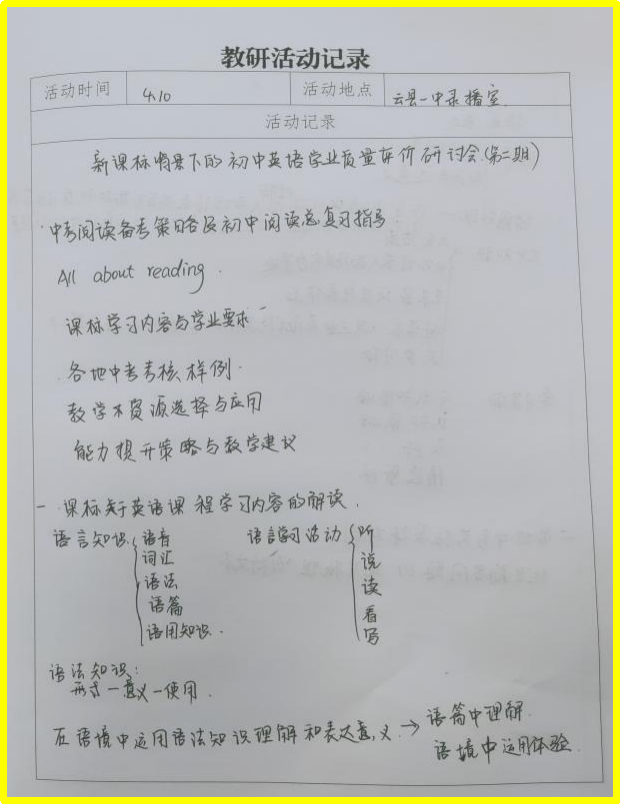 教研活动记录
活动时间 4.10 活动地点 云县一中录播室
活动记录
新课标背景下的初中英语学业质量评价研讨会(第二期)
中考阅读备考策略及初中阅读总复习指导
All about reading.
课标学习内容与学业要求
各地中考考核样例.
教学资源选择与应用
能力提升策略与教学建议
一. 课标关于英语课程学习内容的解读.
语言知识 语音 语言学习活动 听
词汇 说
语法 读
语篇 看
语用知识. 写
语法知识:
形式一意义一使用.
在语境中运用语法知识理解和表达意义. → 语篇中理解.
语境中运用体验.